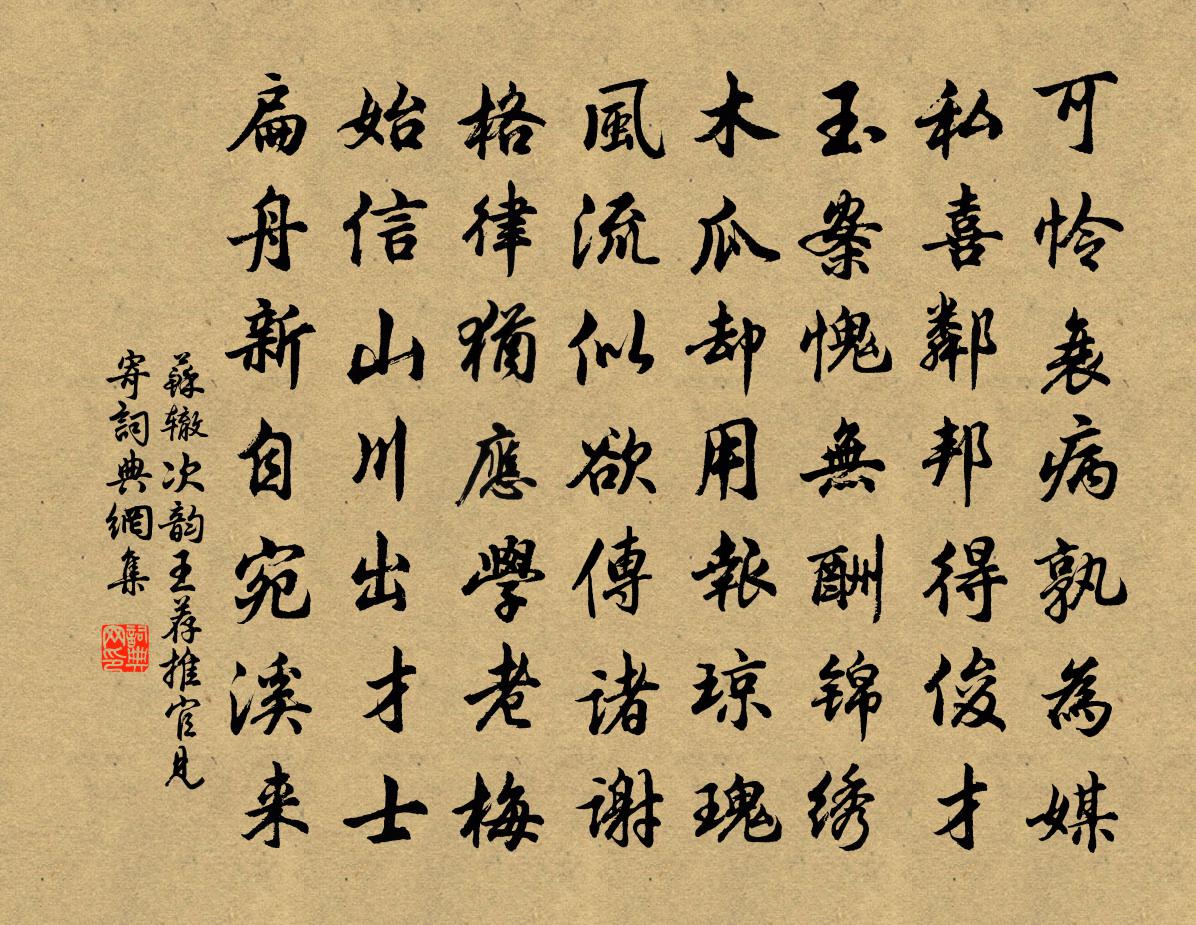 可怜衰病孰為媒
私喜鄰邦得俊才
玉案愧無酬锦绣
木瓜却用報琼瑰
風流似欲傳诸谢
格律猶應學老梅
始信山川出才士
扁舟新自宛溪来
蘇辙次韵王荐推官見
寄詞典網集
詞典网印